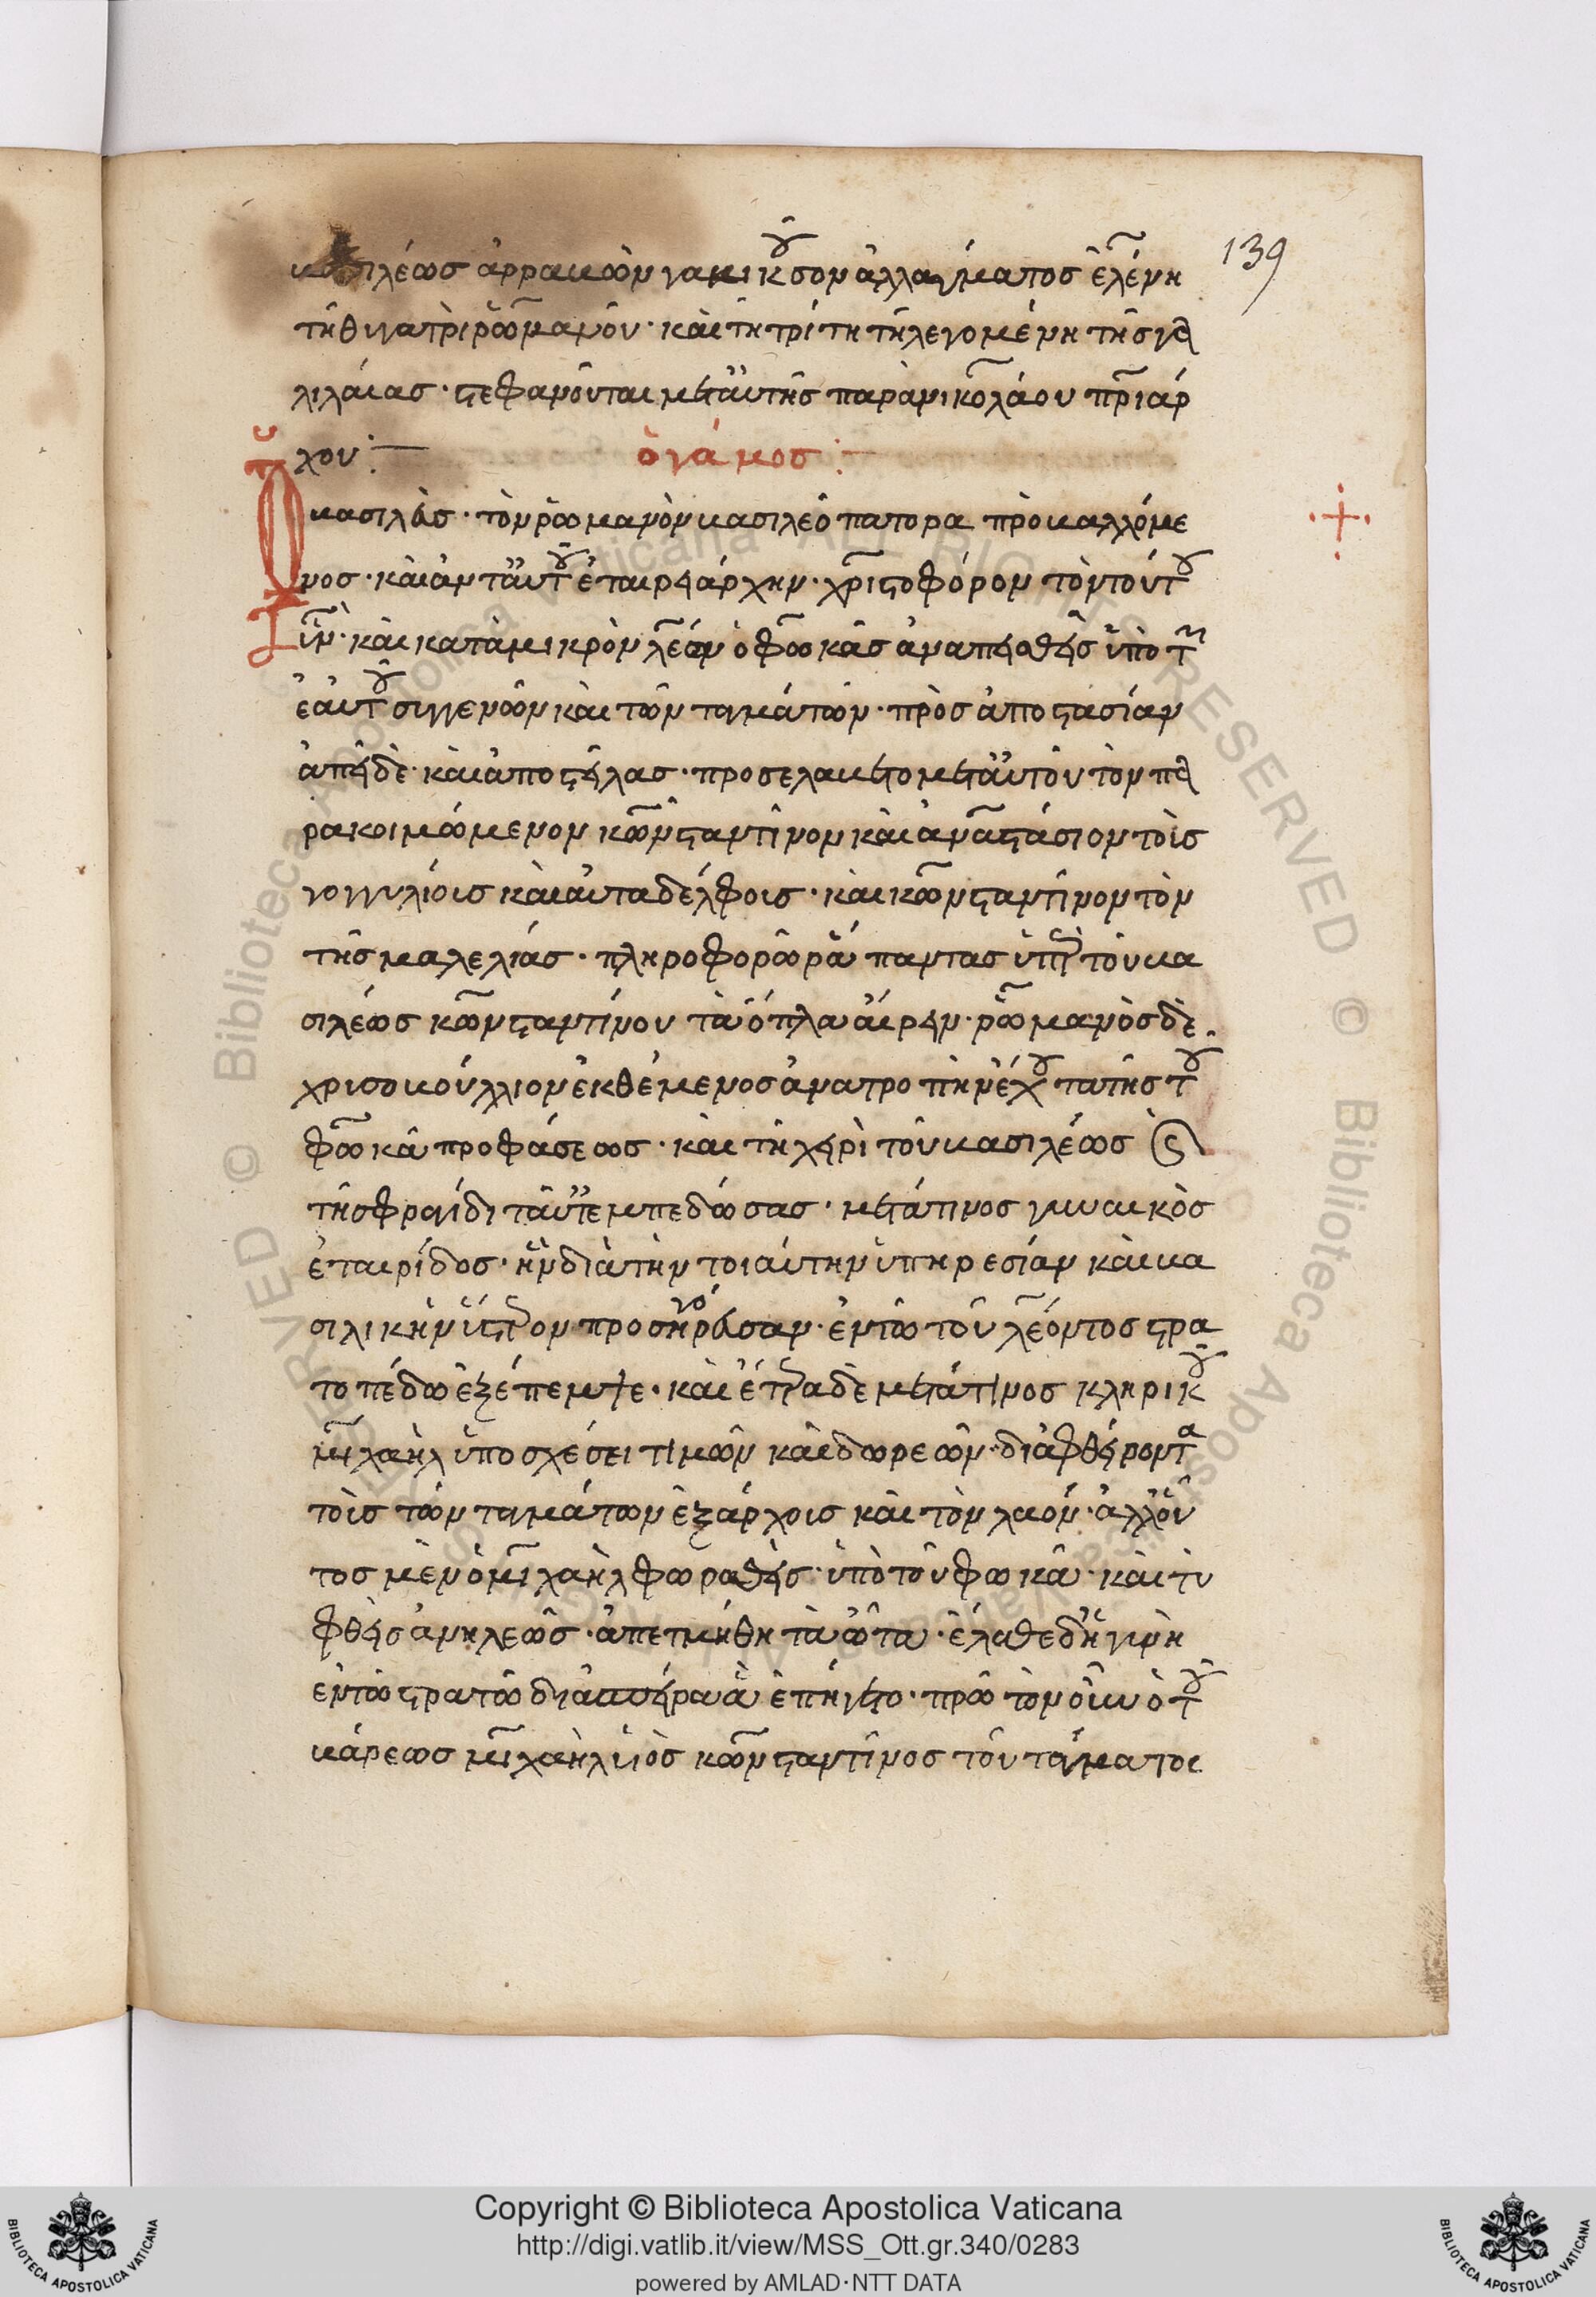 βασιλέως ἀρραβὼν γαμικοῦ συναλλάγματος ἑλένη 139
τῆ θυγατρὶ ῥωμανοῦ· καὶ τῆ τρίτη τῆ λεγομένη τῆς γα
λιλαίας· στεφανοῦται μετ' αὐτῆς παρὰ νικολάου πατριάρ
χου:— ὁ γάμος:—
βασιλεὺς· τὸν ῥωμανὸν βασιλεοπάτορα προβαλλόμε
νος· καὶ ἀντ' αὐτοῦ ἑταιρειάρχην· χριστοφόρον τὸν τούτου
υἱὸν· καὶ κατὰ μικρὸν λέων ὁ φωκᾶς ἀναπεισθεὶς ὑπὸ τῶν
ἑαυτοῦ συγγενῶν καὶ τῶν ταγμάτων· πρὸς ἀποστασίαν
ἀπεῖδε· καὶ ἀποστείλας· προσελάβετο μετ' αὐτοῦ τὸν πα
ρακοιμώμενον κωνσταντῖνον καὶ ἀναστάσιον τοῖς
γογγυλίοις καὶ αὐταδέλφοις· καὶ κωνσταντῖνον τὸν
τῆς μαλελίας· πληροφορῶν πάντας ὑπὲρ τοῦ βα
σιλέως κωνσταντίνου τὰ ὅπλα αἴρειν· ῥωμανὸς δὲ
χρυσοβούλλιον ἐκθέμενος ἀνατροπὴν ἔχον τὰ τῆς τοῦ
φωκᾶ προφάσεως· καὶ τῆ χειρὶ τοῦ βασιλέως καὶ
τῆ σφραγίδι ταῦτ' ἐμπεδώσας· μετά τινος γυναικὸς
ἑταιρίδος· ἣν διὰ τὴν τοιαύτην ὑπηρεσίαν καὶ βα
σιλικὴν ὕστερον προσηγόρευσαν· ἐν τῶ τοῦ λέοντος στρα
τοπέδω ἐξέπεμψε· καὶ ἕτερα δὲ μετά τινος κληρικοῦ
μιχαὴλ ὑποσχέσει τιμῶν καὶ δωρεῶν· διαφθείροντα
τοῖς τῶν ταγμάτων ἐξάρχοις καὶ τὸν λαὸν· ἀλλ' οὗ
τος μὲν ὁ μιχαὴλ φωραθεὶς· ὑπὸ τοῦ φωκᾶ· καὶ τυ
φθεὶς ἀνηλεῶς· ἀπετμήθη τὰ ὦτα· ἔλαθε δ' ἡ γυνὴ
ἐν τῶ στρατῶ διασπείρασα ἃ ἐπήγετο· πρῶτον οὖν ὁ τοῦ
βάρεως μιχαὴλ υἱὸς κωνσταντῖνος τοῦ τάγματος
Copyright © Biblioteca Apostolica Vaticana
http://digi.vatlib.it/view/MSS_Ott.gr.340/0283
powered by AMLAD·NTT DATA